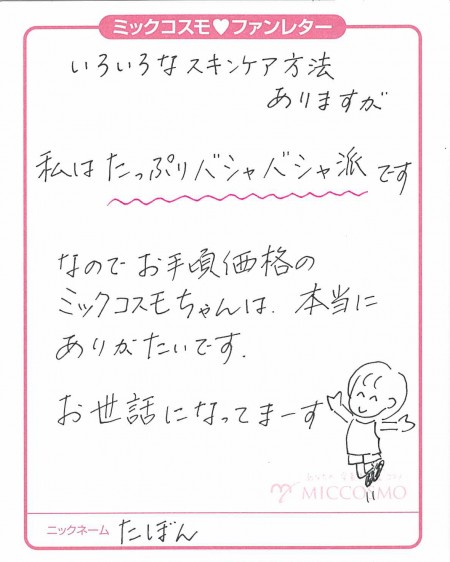 ミックコスモ♥ファンレター
いろいろなスキンケア方法
ありますが
私はたっぷりバシャバシャ派です
なのでお手頃価格の
ミックコスモちゃんは、本当に
ありがたいです.
お世話になってまーす
MICCOSMO
ニックネーム たぼん